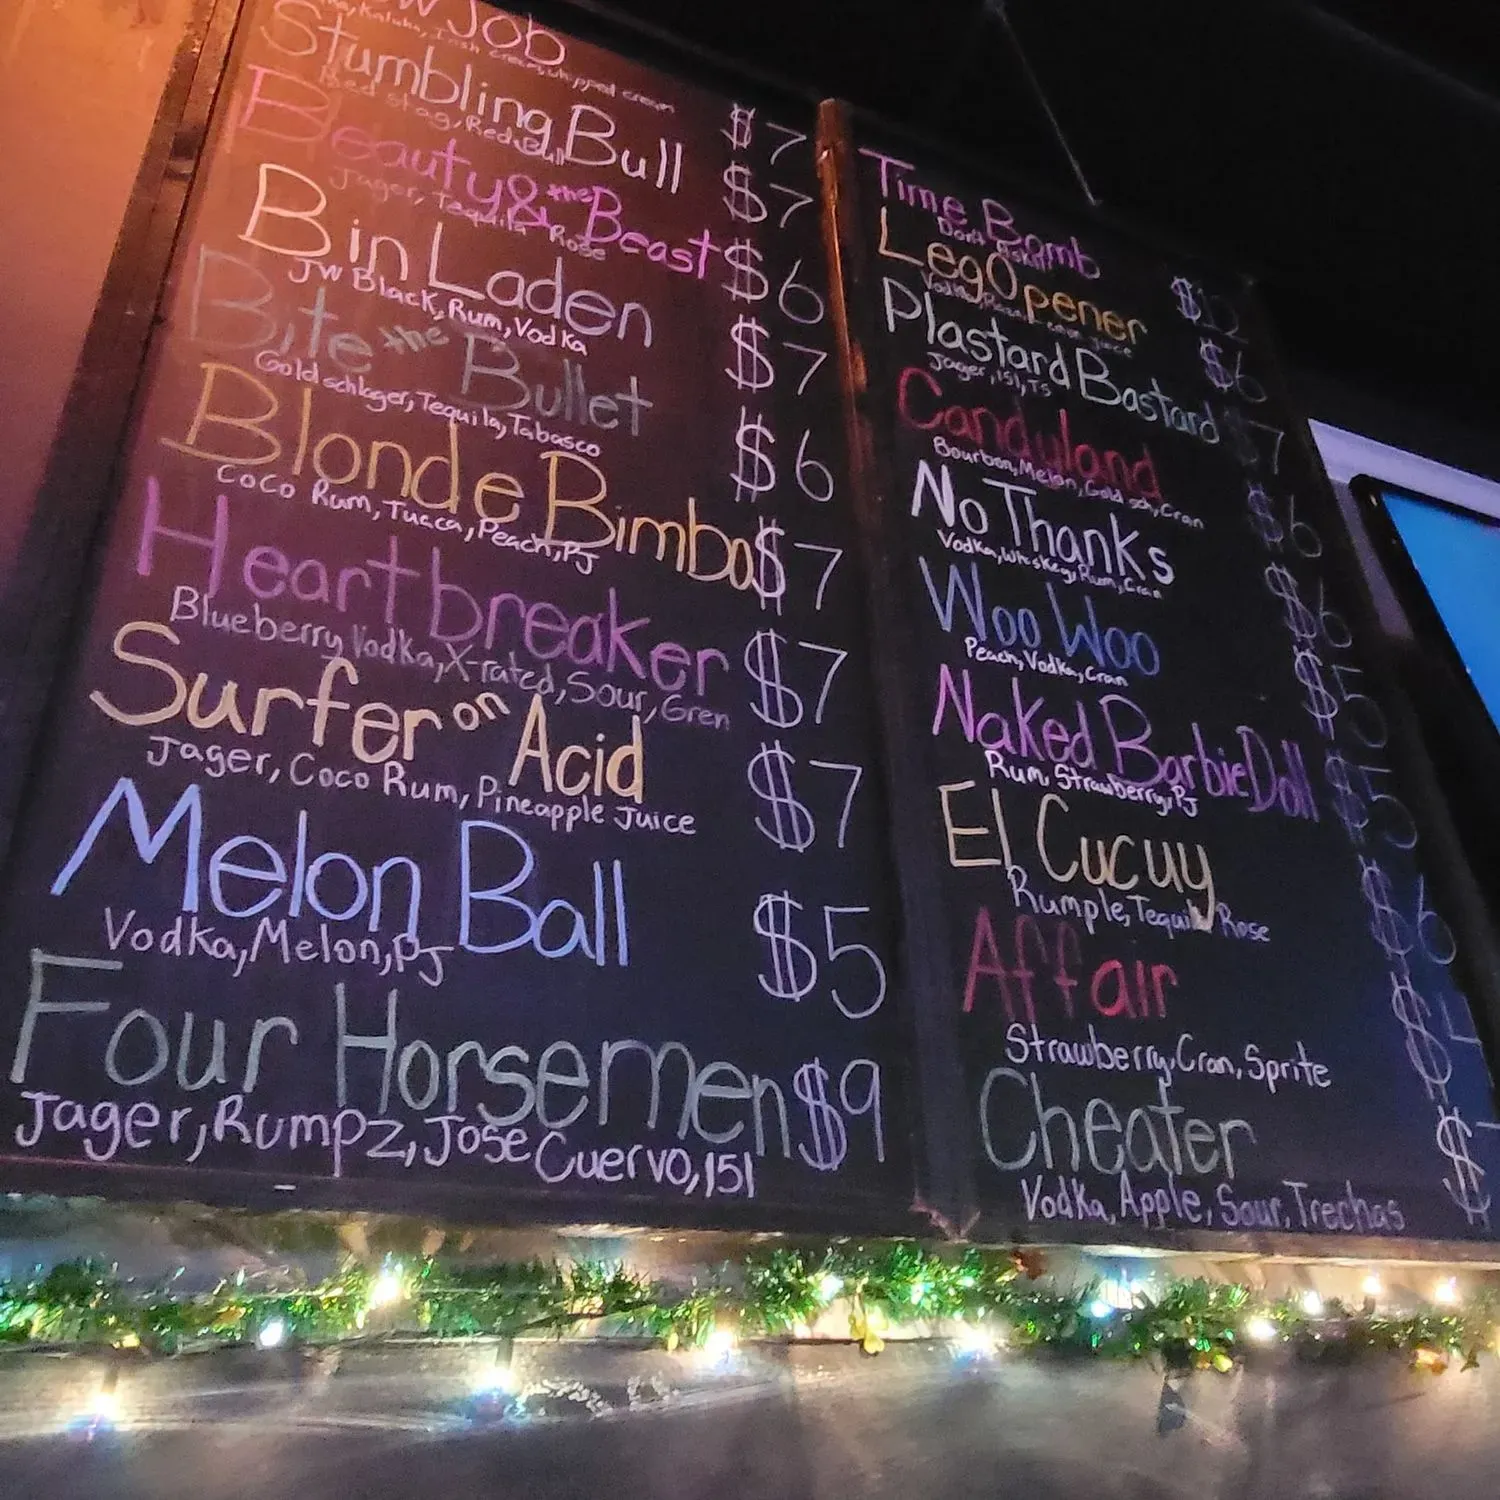 Job
Kaluha, Irish cream, whipped cream
Stumbling Bull $7
Red Stag, Red Bull
Beauty & the Beast $7
Jager, Tequila Rose
Bin Laden $6
JW Black, Rum, Vodka
Bite the Bullet $7
Goldschlager, Tequila, Tabasco
Blonde Bimbo $6
Coco Rum, Tuaca, Peach, PJ
Heartbreaker $7
Blueberry Vodka, X-rated, Sour, Gren
Surfer on Acid $7
Jager, Coco Rum, Pineapple Juice
Melon Ball $7
Vodka, Melon, PJ
Four Horsemen $5
Jager, Rumpz, Jose Cuervo, 151
$9
Time Bomb
Don't Ask!!
Leg Opener $12
Vodka,
Plastard Bastard $6
Jager, 151, TS
Candyland $7
Bourbon, Melon, Gold sch, Cran
No Thanks $6
Vodka, Whiskey, Rum, Cran
Woo Woo $6
Peach, Vodka, Cran
Naked Barbie Doll $5
Rum, Strawberry, PJ
El Cucuy $5
Rumple, Tequila Rose
Affair $6
Strawberry, Cran, Sprite
Cheater $
Vodka, Apple, Sour, Trechas
$